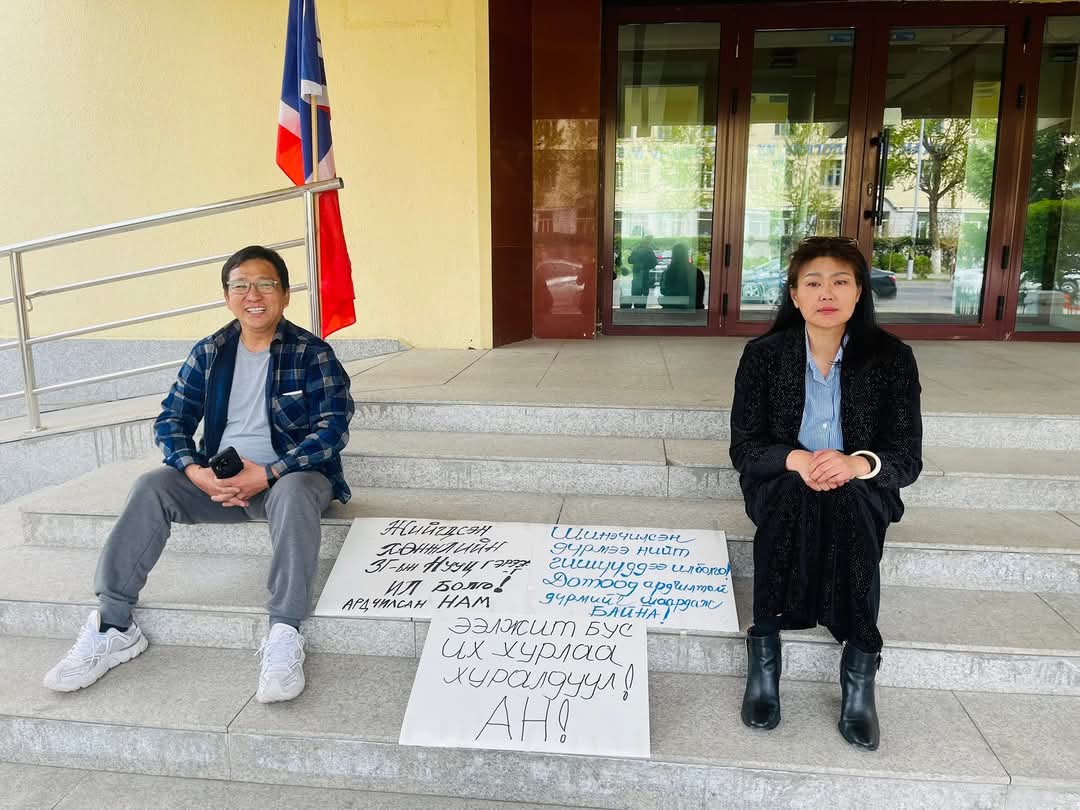 ЖИЙГДСЭН
ХӨНЖЛИЙН
ЗГ-ын Нууц гэрээ
-г
ИЛ БОЛГО!
АРДЧИЛСАН НАМ
Шинэчилсэн
дүрмээ нийт
гишүүддээ ил болго!
Дотоод ардчилтай
дүрмийг шаардаж
БАЙНА!
ЭЭЛЖИТ БУС
ИХ ХУРЛАА
ХУРАЛДУУЛ!
АН!